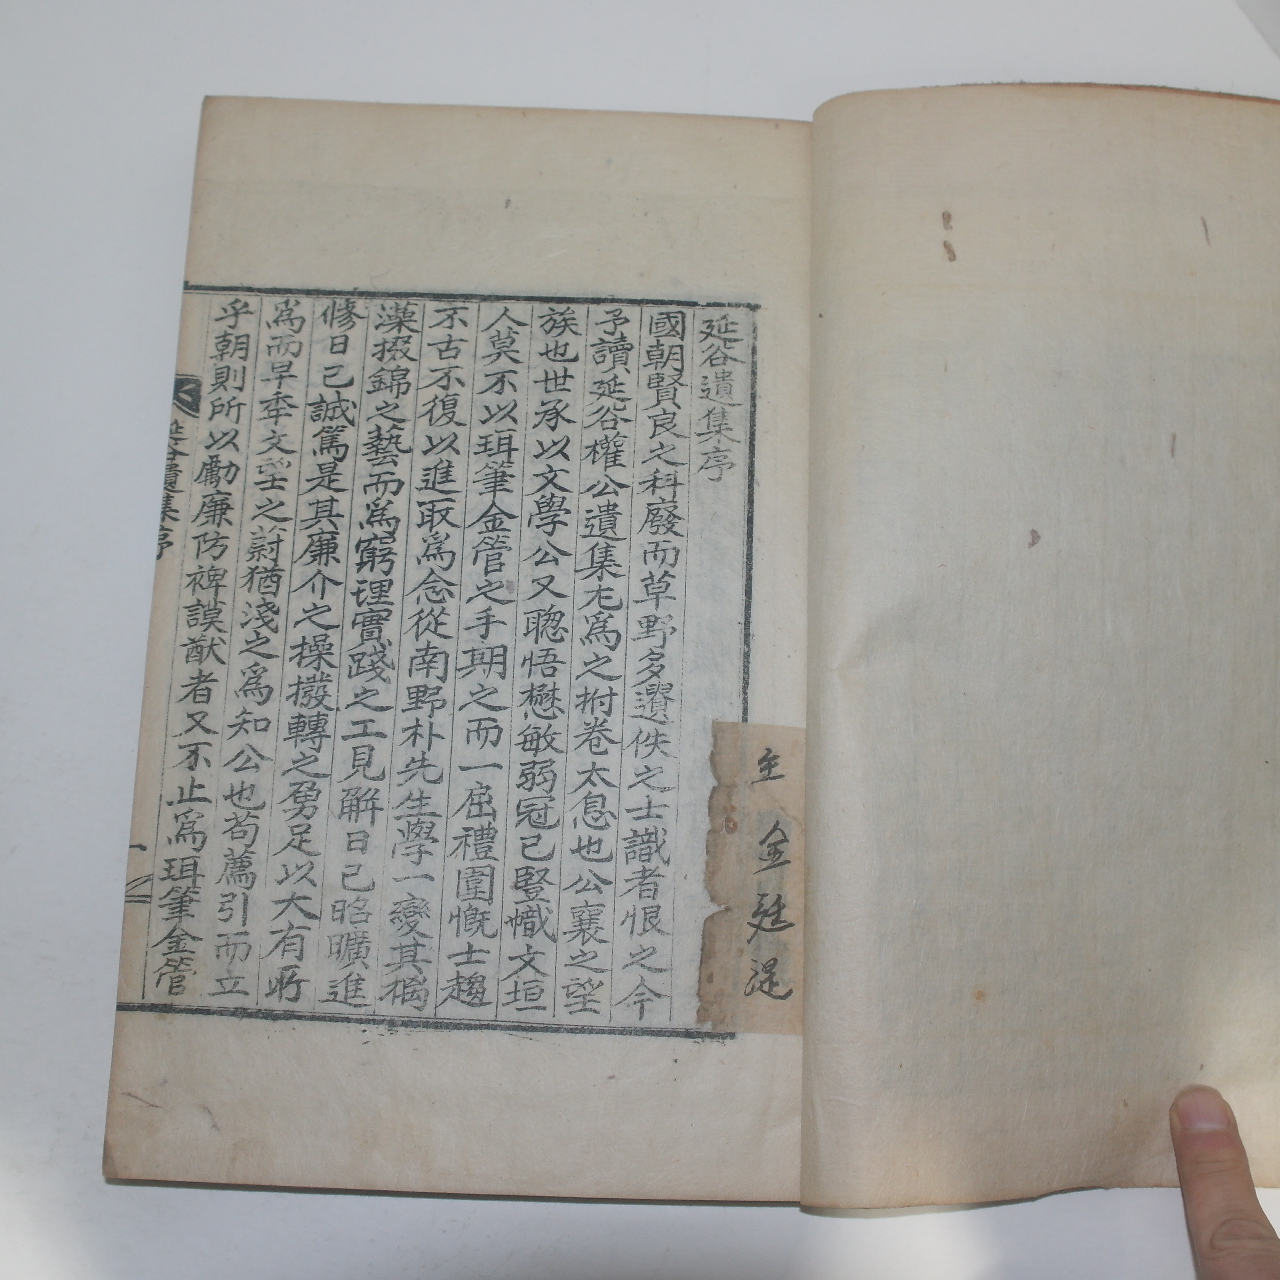 延谷遺集序
國朝賢良之科廢而草野多遺佚之士識者恨之今
予讀延谷權公遺集尤爲之拊卷太息也公襄之望
族也世承以文學公又聰悟懋敏弱冠已豎幟文垣
人莫不以珥筆金管之手期之而一屈禮圍慨士趨
不古不復以進取爲念從南野朴先生學一變其摛
藻掇錦之藝而爲窮理實踐之工見解日已昭曠進
修日已誠篤是其廉介之操撥轉之勇足以大有所
爲而早年文望之蔚猶淺之爲知公也苟薦引而立
乎朝則所以勵廉防裨謨猷者又不止爲珥筆金管
延谷遺集序
一
主 金廷湜